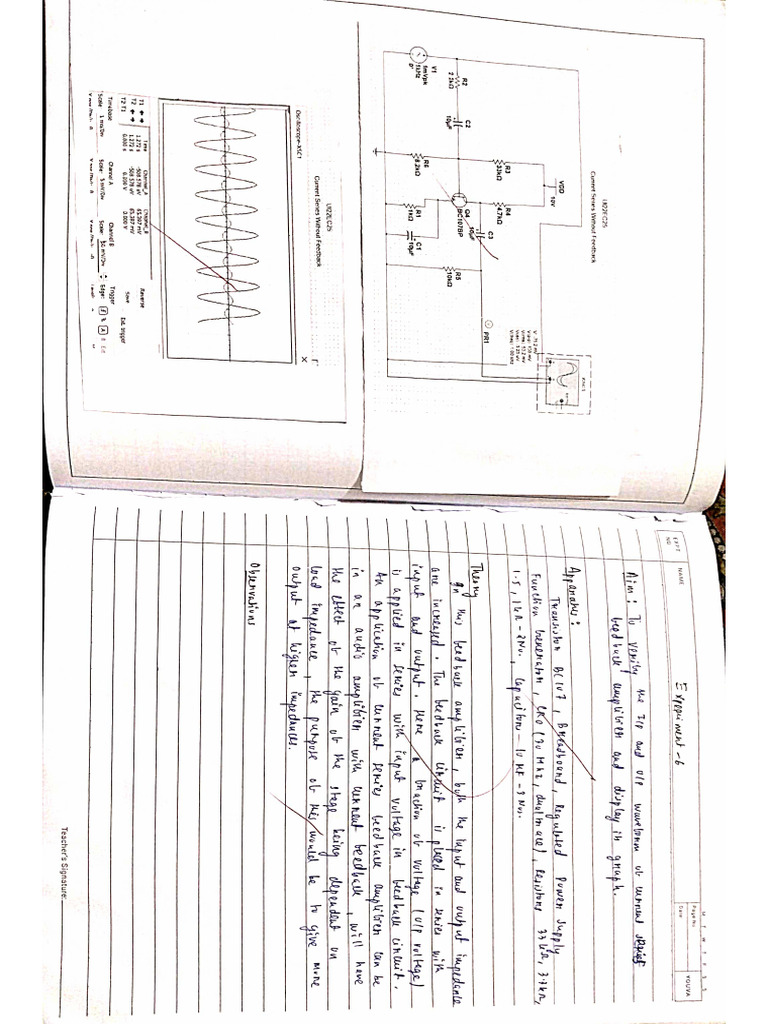 U22EC25
Current Series Without Feedback
VDD
10V
R3
33kΩ
R4
4.7kΩ
C3
10µF
Q4
BC107BP
R2
2.2kΩ
C2
10µF
V1
1mVpk
1kHz
0°
R6
8.2kΩ
R1
1kΩ
C1
10µF
R5
10kΩ
PR1
XSC1
U22EC25
Current Series Without Feedback
Oscilloscope-XSC1
Time Channel_A Channel_B
T1 1.272 s -508.578 nV 65.307 mV
T2 1.272 s -508.578 nV 65.307 mV
T2-T1 0.000 s 0.000 V 0.000 V
Reverse
Save
Ext. trigger
Timebase
Scale: 1 ms/Div
Channel A
Scale: 5 mV/Div
Channel B
Scale: 50 mV/Div
Trigger
Edge:
EXPT
NO.
NAME
Experiment - 6
M T W T F S S
Page No.:
Date:
YOUVA
Aim : To verify the I/p and O/p waveform of current series
feedback amplifier and display in graph.
Apparatus :
Transistor BC107, Breadboard, Regulated Power supply
Function Generator, CRO (20 MHz, dual trace), Resistors 33 kΩ, 3.7kΩ,
1.5, 1kΩ - 2No., Capacitors - 10 µF - 3 Nos.
Theory
In this feedback amplifier, both the input and output impedance
are increased. The feedback circuit is placed in series with
input and output. Here a fraction of voltage (O/p voltage)
is applied in series with input voltage in feedback circuit.
An application of current series feedback amplifier can be
in an audio amplifier with current feedback, will have
the effect of the gain of the stage being dependent on
load impedance, the purpose of this would be to give more
output at higher impedances.
Observations
Teacher's Signature: